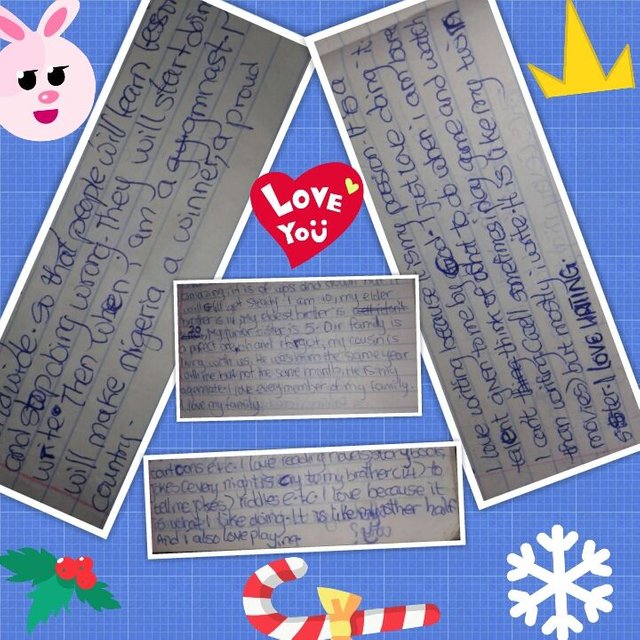 dwide. So that people will learn lesson
and stop doing wrong. They will start doin
write. Then when I am a gymnast I
will make nigeria a winner, a proud
country.
I love writing because it is my passion. It is a
talent given to me by God. I just love doing it
I can't think of what to do when I am bored
than writing (well sometimes, play game and watch
movies) but mostly i write. It is like my twin
sister. I LOVE WRITING.
LOVE
YOU
it is of ups and down but it
will still get steady. I am 10, my elder
brother is my eldest brother is
my junior sister is 5. Our family is
a perfect match and my cousin is
living with us. He was born the same year
with me but not the same month. He is my
agemate. I love every member of my family.
I love my family.
cartoons e.t.c. I love reading novels, story books,
jokes (every night is cry to my brother (12) to
tell me jokes) riddles e.t.c. I love because it
is what I like doing. It is like my other half
And I also love playing